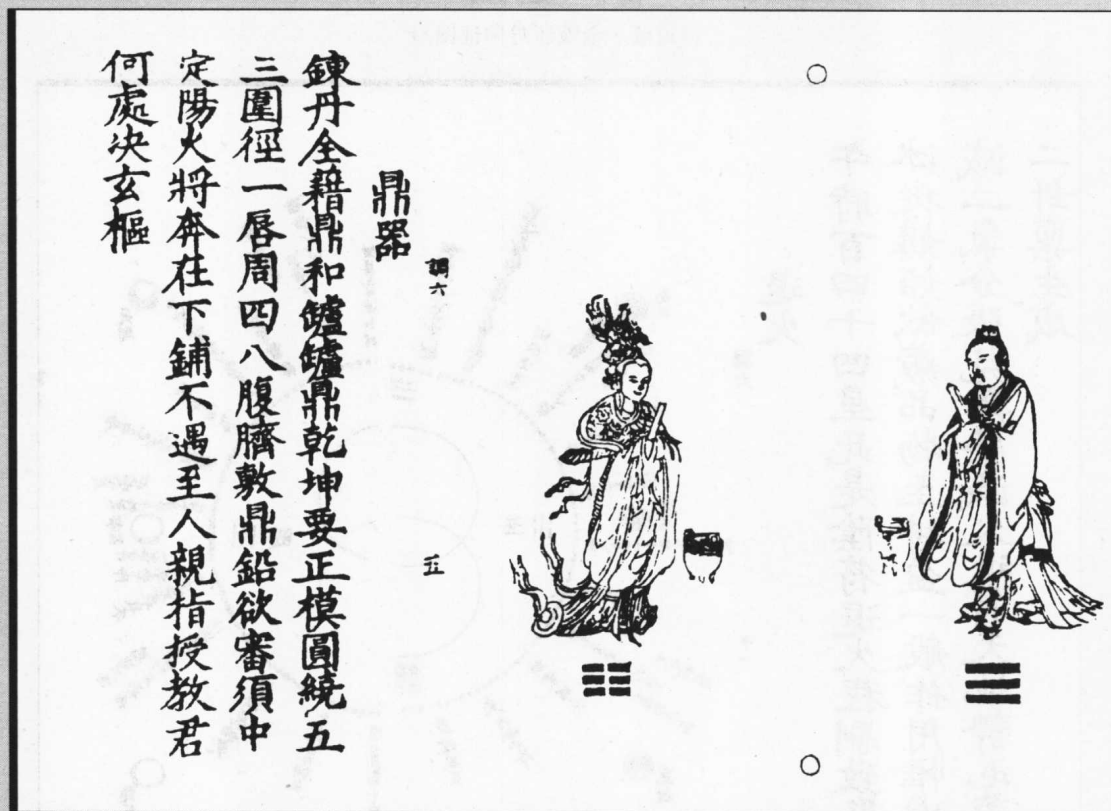 調六
五
鼎器
鍊丹全藉鼎和鑪鑪鼎乾坤要正模圓繞五
三圍徑一唇周四八腹臍敷鼎鉛欲審須中
定陽火將奔在下鋪不遇至人親指授教君
何處决玄樞